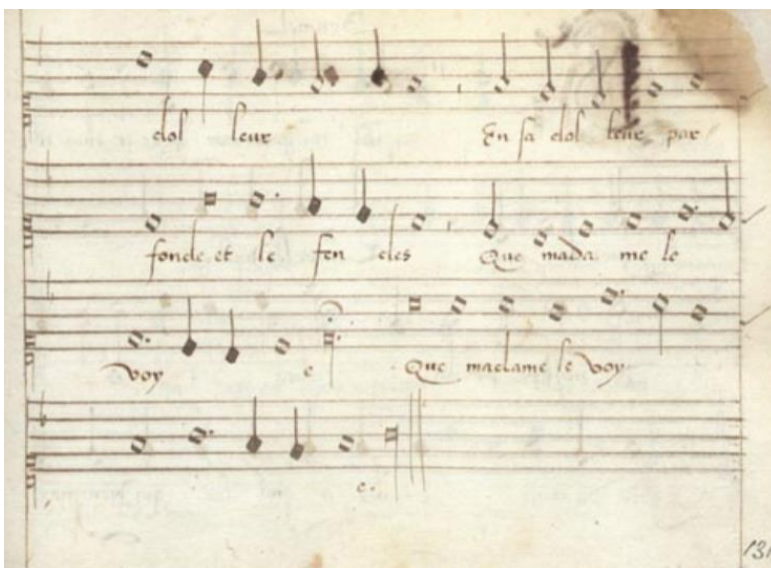 dol leur En sa dol leur par
fonde et le fen des Que mada me le
voy e Que madame le voy
e.
131